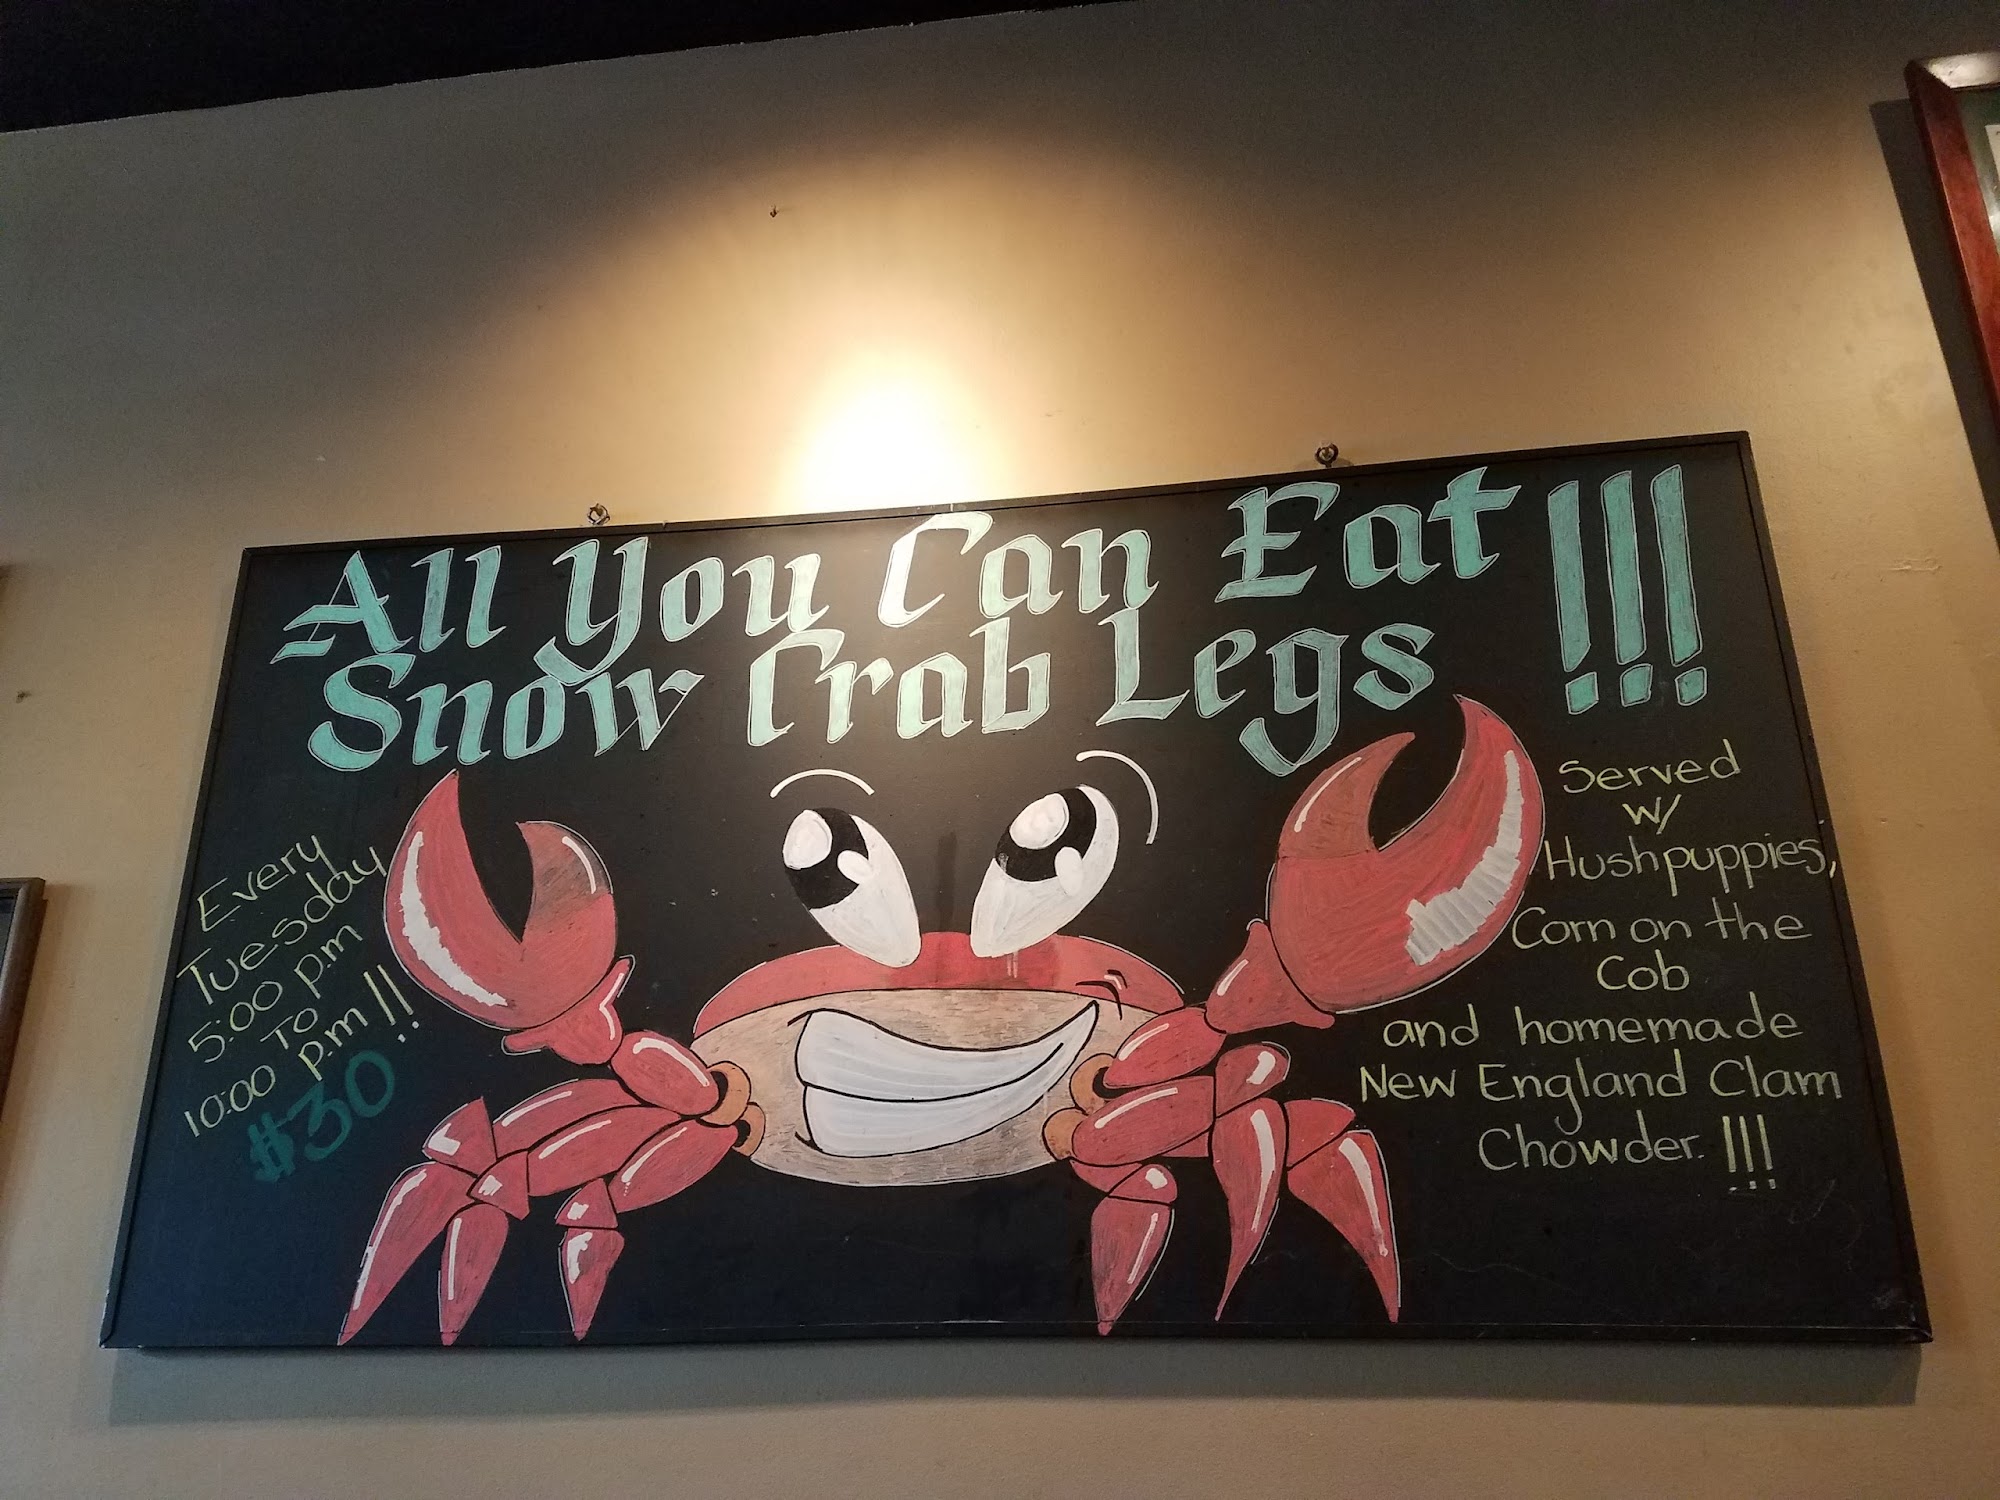 All You Can Eat !!!
Snow Crab Legs
Every
Tuesday
5:00 p.m
To
10:00 p.m !!
$30
Served
w/
Hushpuppies,
Corn on the
Cob
and homemade
New England Clam
Chowder. !!!